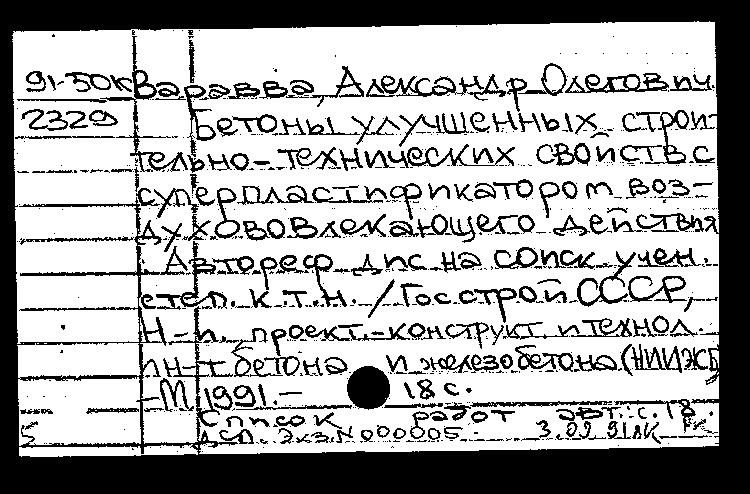 91-50к Варавва, Александр Олегович
2329 Бетоны улучшенных строи-
тельно-технических свойств с
суперпластификатором воз-
духововлекающего действия
: Автореф. дис на соиск. учен.
степ. к.т.н. / Госстрой СССР,
Н-и., проект.-конструкт. и технол.
ин-т бетона и железобетона (НИИЖБ
-М. 1991.- 18 с.
Список работ авт.: с. 18.
ДСП. Экз. N 000005. 3.09.91